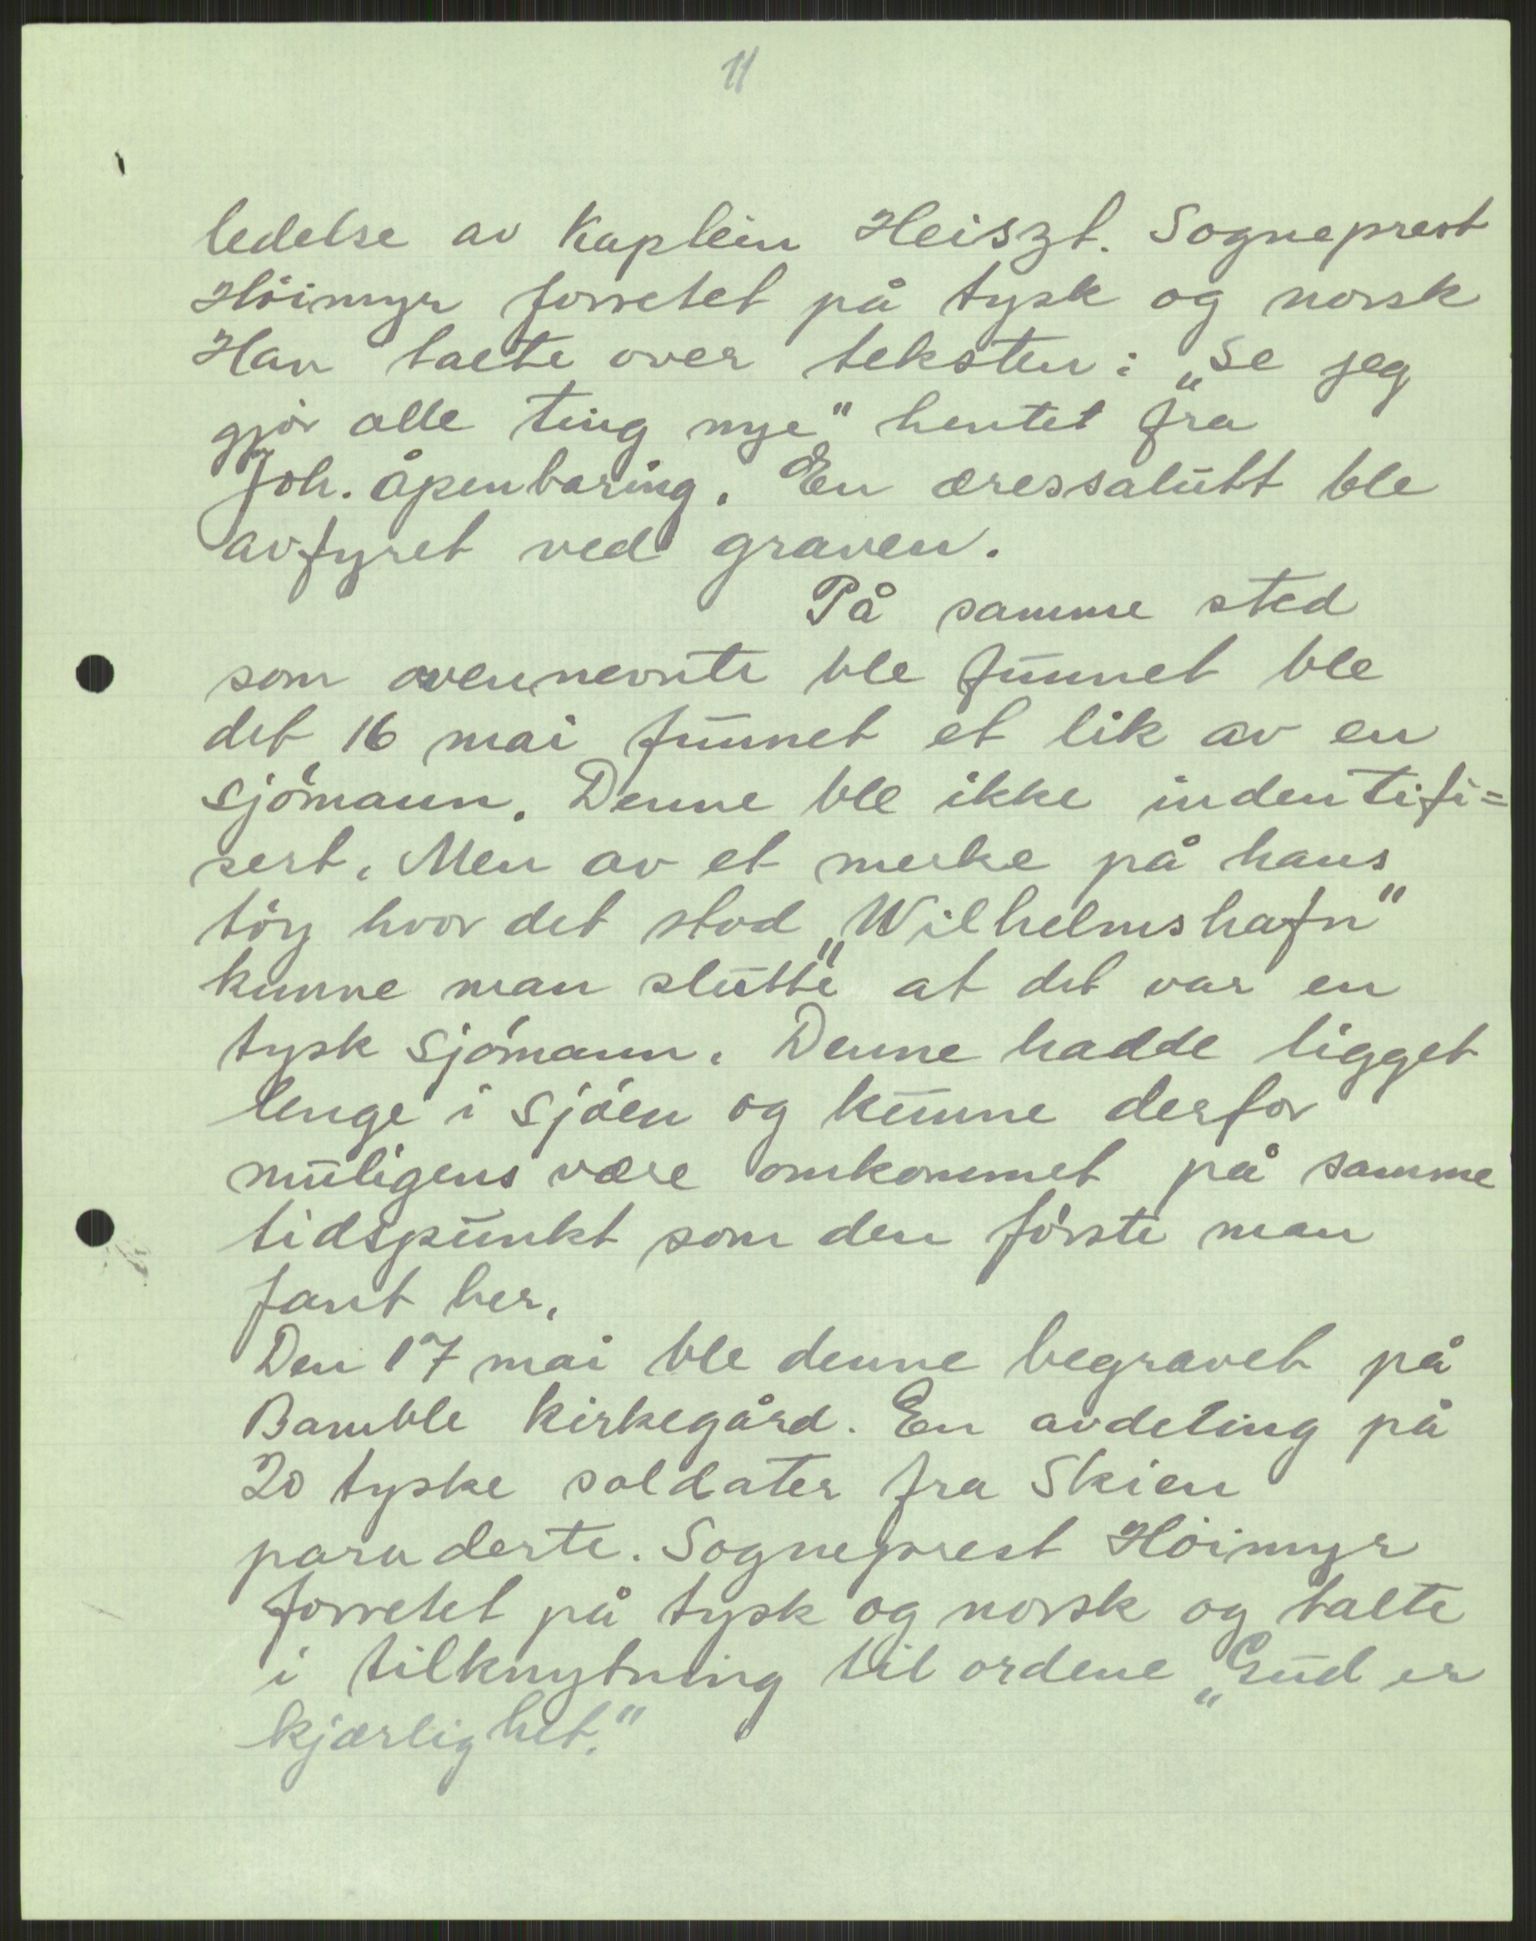 11
ledelse av Kaptein Heiszt. Sogneprest
Höimyr forretet på tysk og norsk
Han talte over teksten: „Se jeg
gjör alle ting nye" hentet fra
Joh. åpenbaring. En æressalutt ble
avfyret ved graven.
På samme sted
som ovennevnte ble funnet ble
det 16 mai funnet et lik av en
sjömann. Denne ble ikke indentifi=
sert. Men av et merke på hans
töy hvor det stod „Wilhelmshafn"
kunne man slutte at det var en
tysk sjömann. Denne hadde ligget
lenge i sjöen og kunne derfor
muligens være omkommet på samme
tidspunkt som den förste man
fant her.
Den 17 mai ble denne begravet på
Bamble kirkegård. En avdeling på
20 tyske soldater fra Skien
paraderte. Sogneprest Höimyr
forretet på tysk og norsk og talte
i tilknytning til ordene „Gud er
kjærlighet."